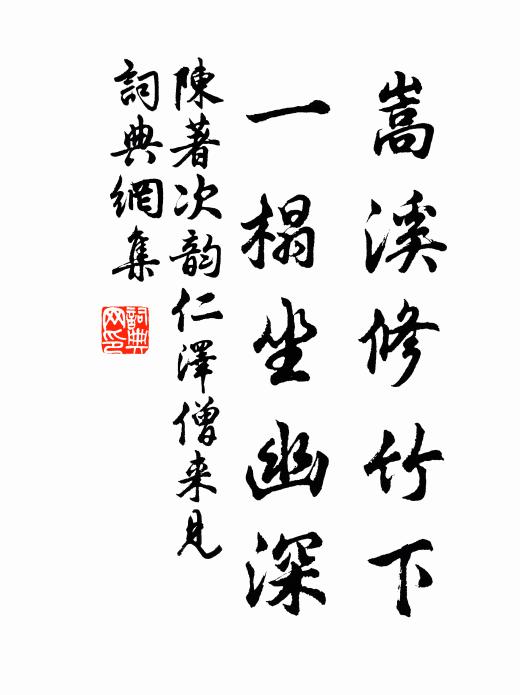 嵩溪修竹下
一榻坐幽深
陳著次韵仁澤僧来見
詞典網集
詞典网印